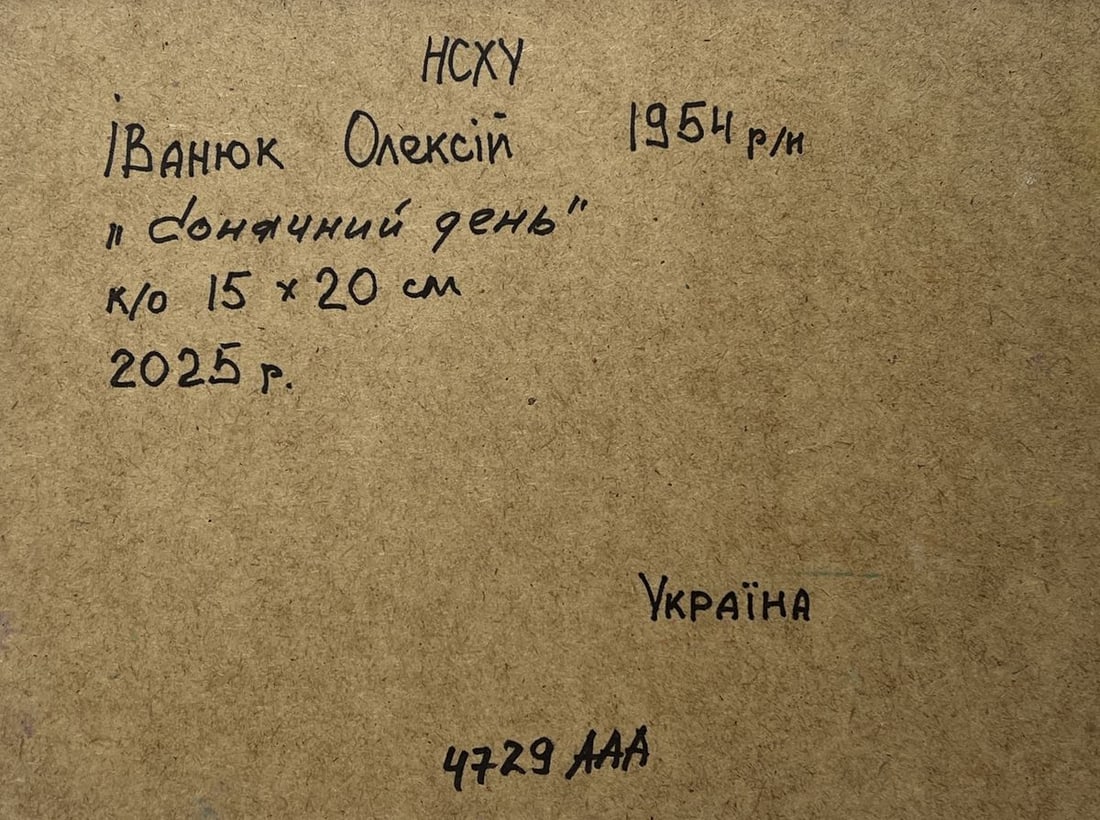 НСХУ
Іванюк Олексій 1954 р/н
„Сонячний день"
к/о 15 x 20 см
2025 р.
Україна
4729 ААА